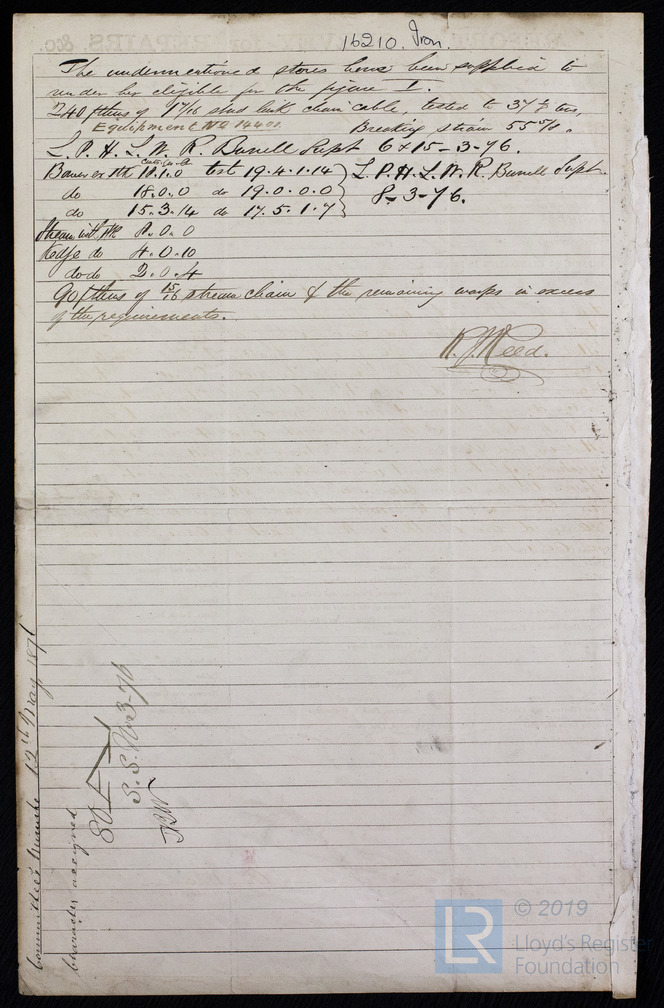 16210. Iron.
The undermentioned stores have been supplied to
render her eligible for the figure 1.
240 fthms of 1 7/16 stud link chain cable, tested to 37 1/5 tons,
Equipment No 14401 Breaking strain 55 5/10.
L. P. H. L. W. R. Bunell Supt 6 & 15-3-76.
Bower ex Stk 18.1.0 test 19.4.1.14 L. P. H. L. W. R. Bunell Supt.
do 18.0.0 do 19.0.0.0 8-3-76.
do 15.3.14 do 17.5.1.7
Stream 8.0.0
Kedge do 4.0.10
do do 2.0.4
90 fthms of 15/16 stream chain & the remaining warps in excess
of the requirements.
Committee's Minute 12th May 1876
Character assigned
80
S.S. No 3-76
© 2019
LR
Lloyd's Register
Foundation